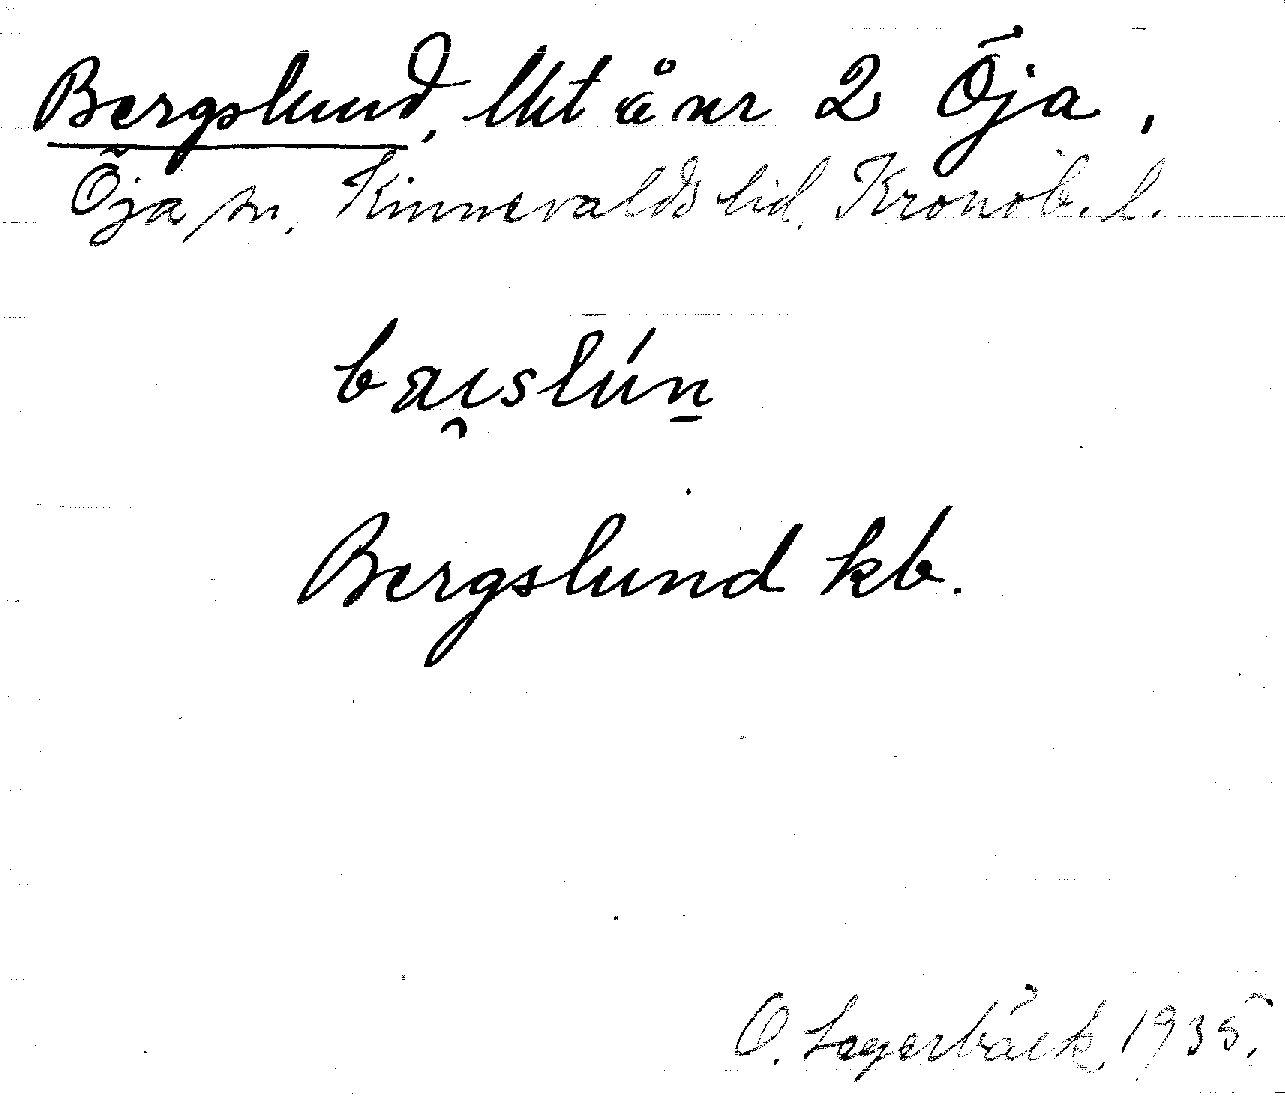 Bergslund, lht å nr 2 Öja,
Öja sn, Kinnevalds hd, Kronob. l.
Bergslund kb.
O. Lagerbäck, 1935.